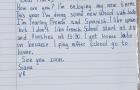 How are you? I'm enjoying my new term.
This year I'm doing some new school subjects
I'm learning French and Spanish. I like sport
but I don't like French. School starts at 8:30
and finishes at 13:30. I get home late
on because I play after school go to
home.
See you soon.